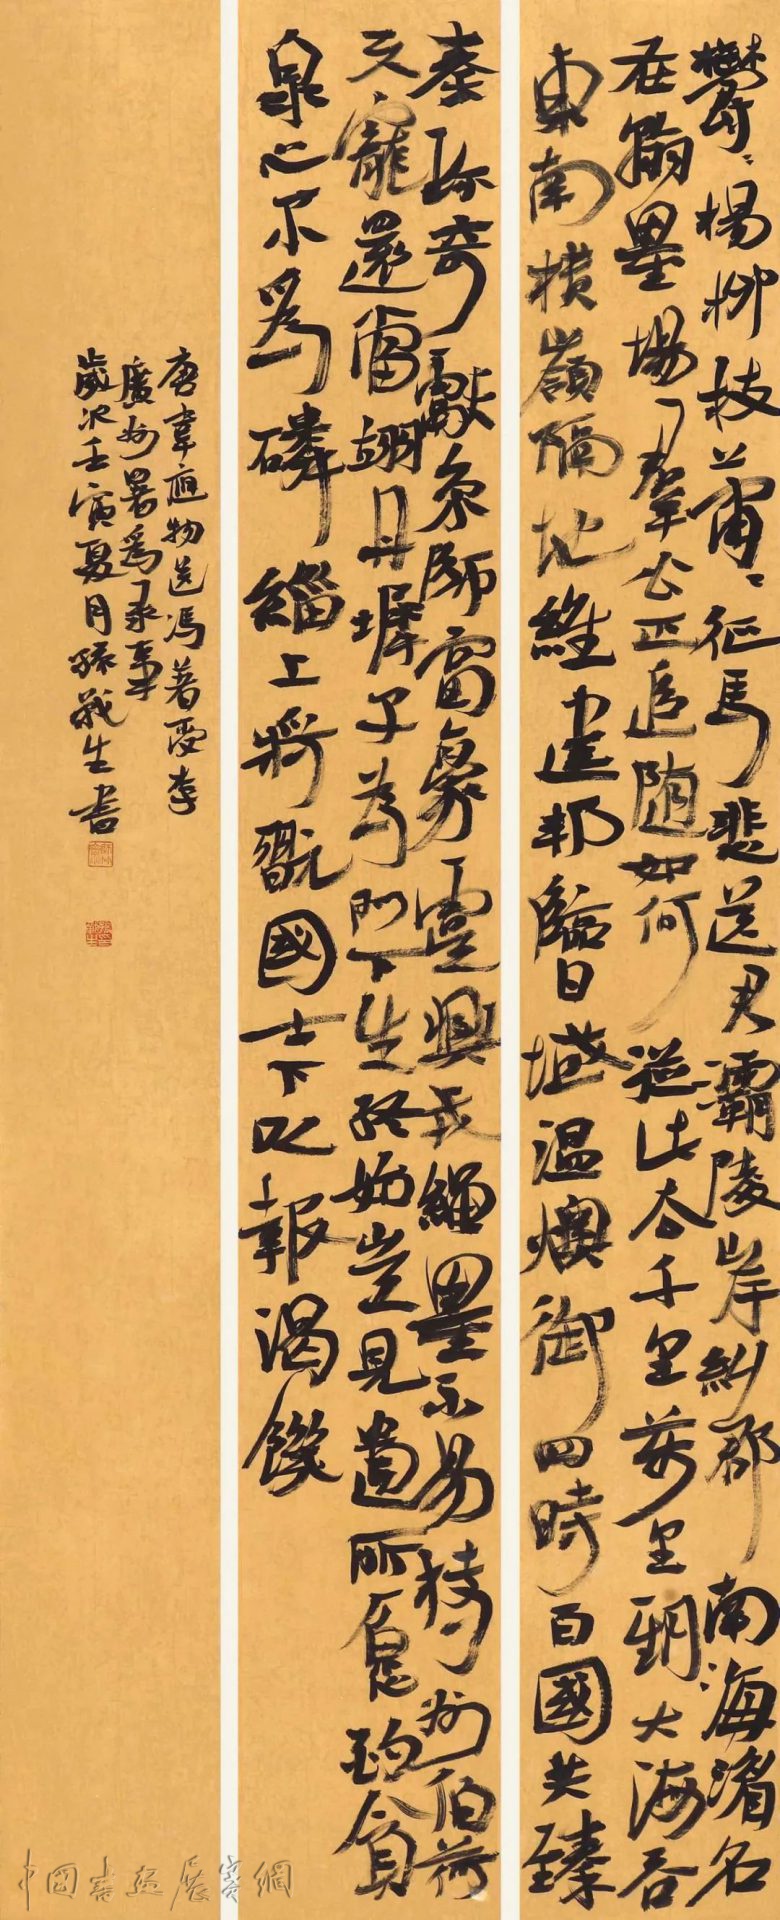 鬱〻楊柳枝蕭〻征馬悲送君灞陵岸糾郡南海湄名
在翰墨場群公正追随如何從此去千里萬里期大海吞
東南橫嶺隔地維建邦臨日域温燠御四時百國共臻
奏珍奇獻京師富豪虞興戎繩墨不易持州伯荷
天寵還當翊丹墀子為門下生終始豈見遺所愿酌貪
泉心不為磷緇上將翫國士下以報渴饑
唐韋應物送馮著受李
廣州署為录事
歲次壬寅夏月生書
中國書畫展賽網